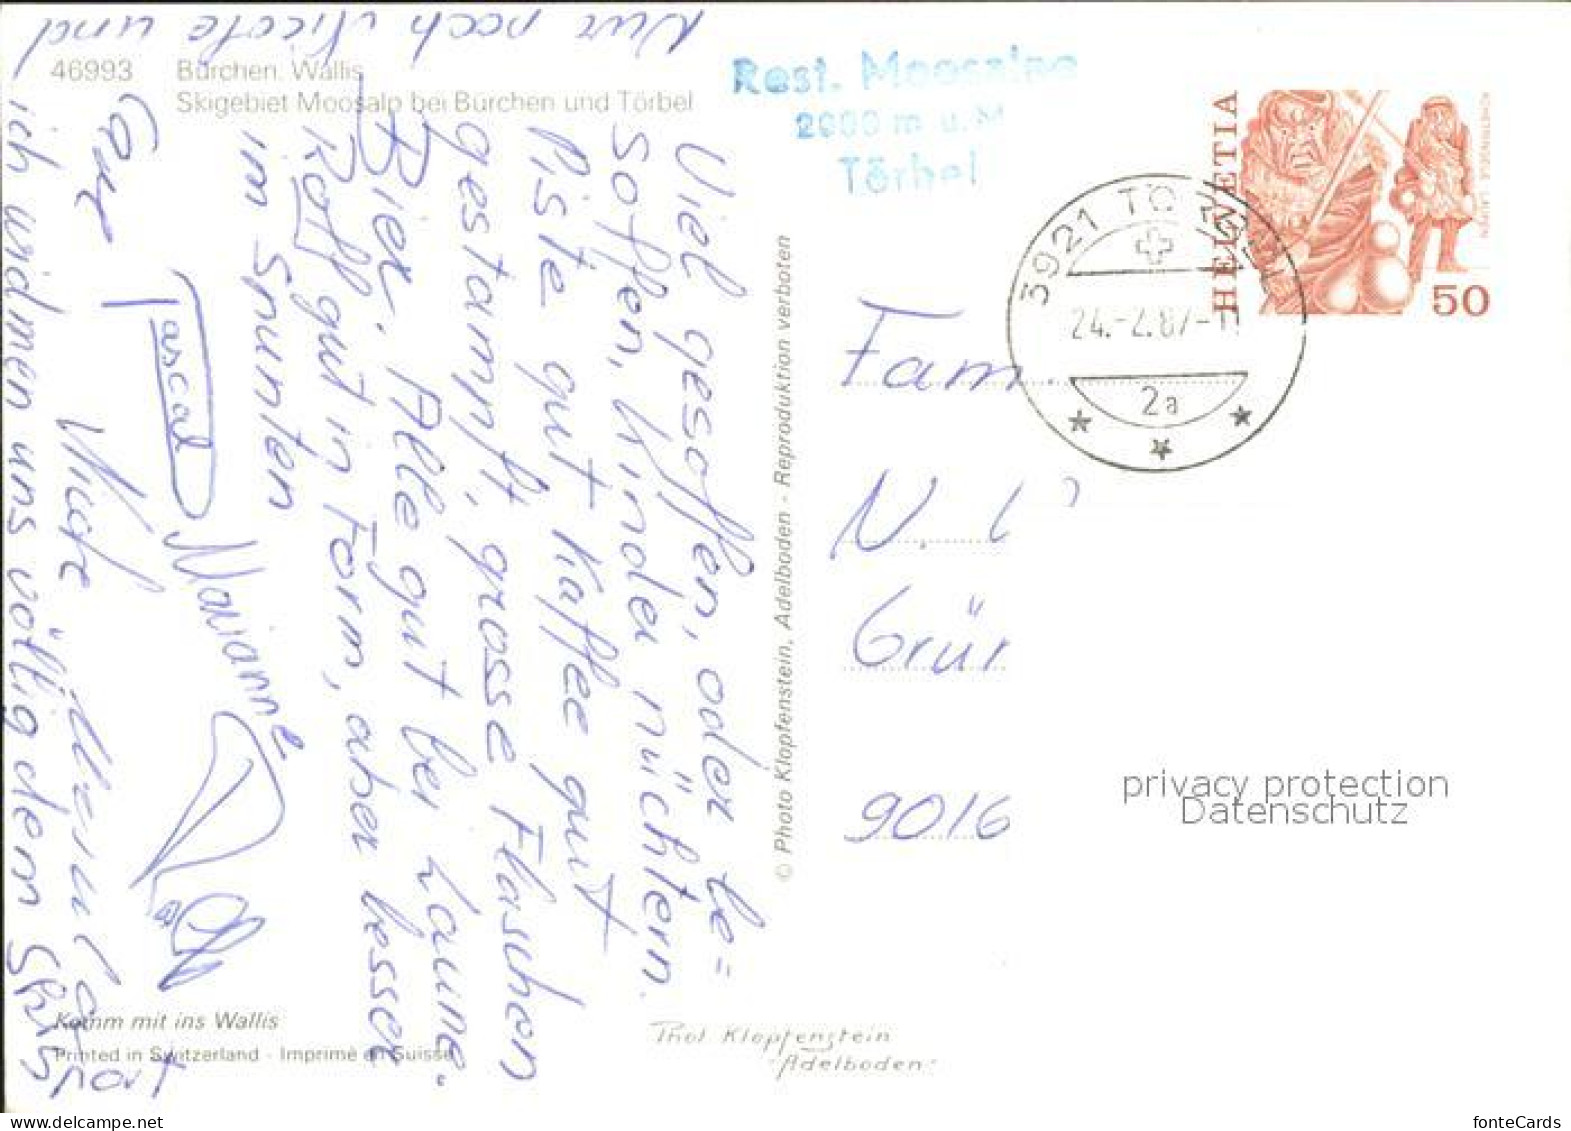 46993 Bürchen, Wallis
Skigebiet Moosalp bei Bürchen und Törbel
Rest. Moosalpe
2000 m ü. M
Törbel
HELVETIA
50
3921 TÖRBEL
24.-2.87-
2a
Viel gesoffen, oder be=
soffen, Kinder nüchtern.
Piste gut Kaffee gut
gestampft, grosse Flaschen
Bier. Alle gut bei Laune.
Rolf gut in Form, aber besser
im Snunten
Nur noch Nicole und
ich widmen uns völlig dem Skis
port
Pascal
Marianne
Fam.
N.
Grü
9016
© Photo Klopfenstein, Adelboden - Reproduktion verboten
Komm mit ins Wallis
Printed in Switzerland - Imprimé en Suisse
Phot Klopfenstein
Adelboden
privacy protection
Datenschutz
www.delcampe.net
fonteCards